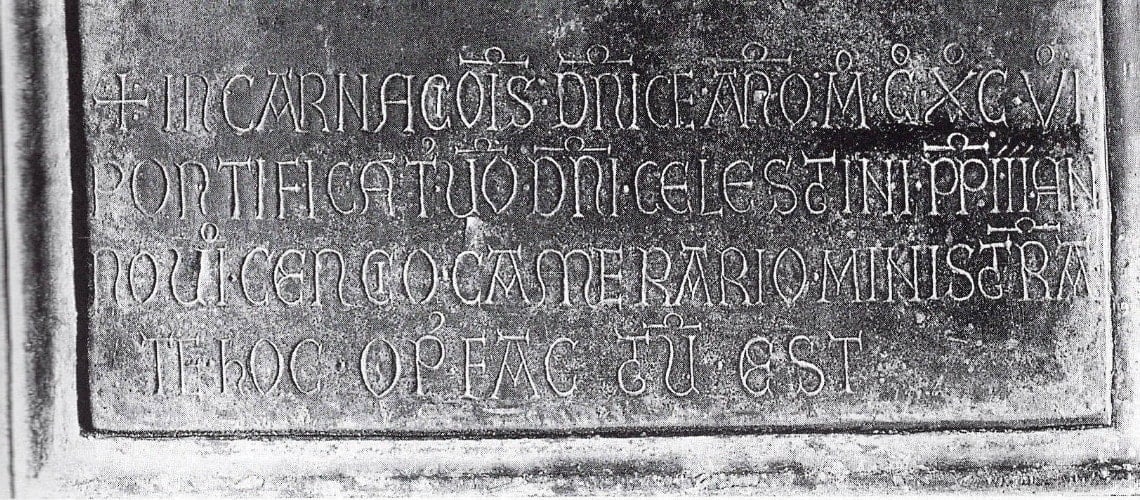 + INCARNACOIS · DNICE · ANO · M · C · XC · VI
PONTIFICAT · UO · DNI · CELESTINI · PP · III · AN
NO VI · CENCIO · CAMERARIO · MINISTRA
TE · hOC · OP FAC TU · EST